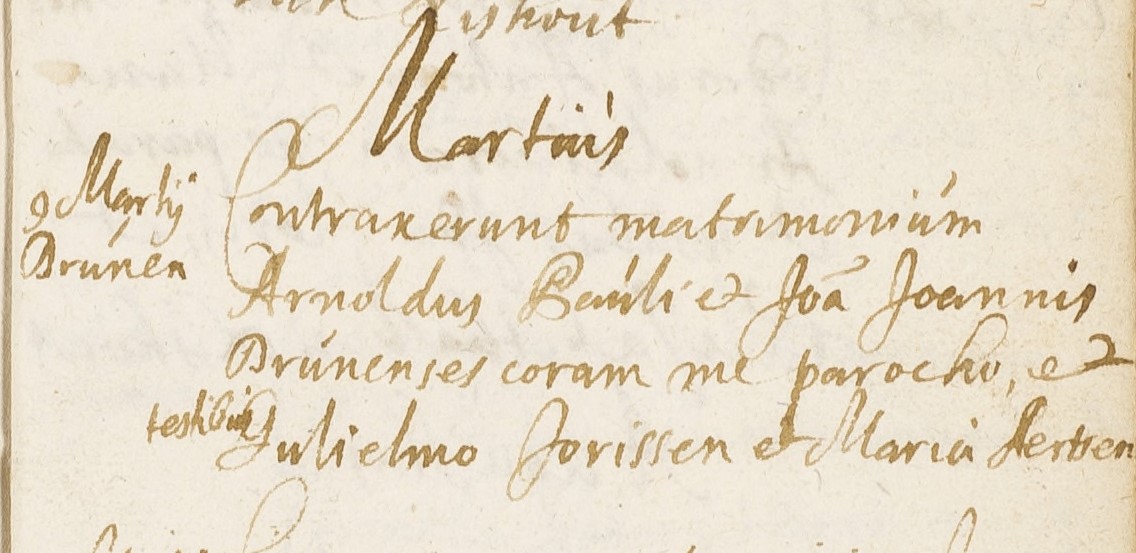 Martius
9 Martij
Drúnen
Contraxerunt matrimoniúm
Arnoldus Paúli et Joã Joannis
Drúnenses coram me parocho, et
testibus Gulielmo Jorissen et Maria Aertsen